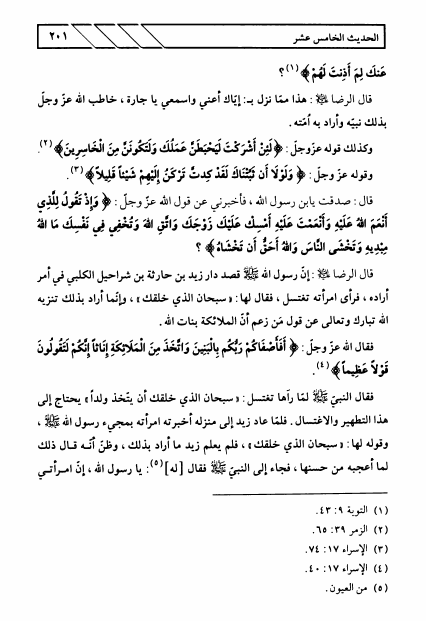 الحديث الخامس عشر
٢٠١
عَنكَ لِمَ أَذِنتَ لَهُمْ ﴾ (١)؟
قال الرضا ﵇ : هذا ممّا نزل بـ: إيّاك أعني واسمعي يا جارة ، خاطب الله عزّ وجلّ
بذلك نبيّه وأراد به أمّته .
وكذلك قوله عزّوجلّ : ﴿ لَئِنْ أَشْرَكْتَ لَيَحْبَطَنَّ عَمَلُكَ وَلَتَكُونَنَّ مِنَ الْخَاسِرِينَ ﴾ (٢).
وقوله عزّ وجلّ : ﴿ وَلَوْلَا أَن ثَبَّتْنَاكَ لَقَدْ كِدتَّ تَرْكَنُ إِلَيْهِمْ شَيْئاً قَلِيلاً ﴾ (٣).
قال : صدقت يابن رسول الله ، فأخبرني عن قول الله عزّ وجلّ : ﴿ وَإِذْ تَقُولُ لِلَّذِي
أَنْعَمَ اللهُ عَلَيْهِ وَأَنْعَمْتَ عَلَيْهِ أَمْسِكْ عَلَيْكَ زَوْجَكَ وَاتَّقِ اللهَ وَتُخْفِي فِي نَفْسِكَ مَا اللهُ
مُبْدِيهِ وَتَخْشَى النَّاسَ وَاللهُ أَحَقُّ أَن تَخْشَاهُ ﴾ ؟
قال الرضا ﵇ : إنّ رسول الله ﷺ قصد دار زيد بن حارثة بن شراحيل الكلبي في أمر
أراده ، فرأى امرأته تغتسل ، فقال لها : «سبحان الذي خلقك» ، وإنّما أراد بذلك تنزيه
الله تبارك وتعالى عن قول مَن زعم أنّ الملائكة بنات الله .
فقال الله عزّ وجلّ : ﴿ أَفَأَصْفَاكُمْ رَبُّكُم بِالْبَنِينَ وَاتَّخَذَ مِنَ الْمَلَائِكَةِ إِنَاثاً إِنَّكُمْ لَتَقُولُونَ
قَوْلاً عَظِيماً ﴾ (٤).
فقال النبيّ ﷺ لمّا رآها تغتسل : «سبحان الذي خلقك أن يتّخذ ولداً» يحتاج إلى
هذا التطهير والاغتسال . فلمّا عاد زيد إلى منزله أخبرته امرأته بمجيء رسول الله ﷺ ،
وقوله لها : «سبحان الذي خلقك» ، فلم يعلم زيد ما أراد بذلك ، وظنّ أنّه قال ذلك
لما أعجبه من حسنها ، فجاء إلى النبيّ ﷺ فقال [له] (٥): يا رسول الله ، إنّ امرأتي
(١) التوبة ٩: ٤٣.
(٢) الزمر ٣٩: ٦٥.
(٣) الإسراء ١٧: ٧٤.
(٤) الإسراء ١٧: ٤٠.
(٥) من العيون.